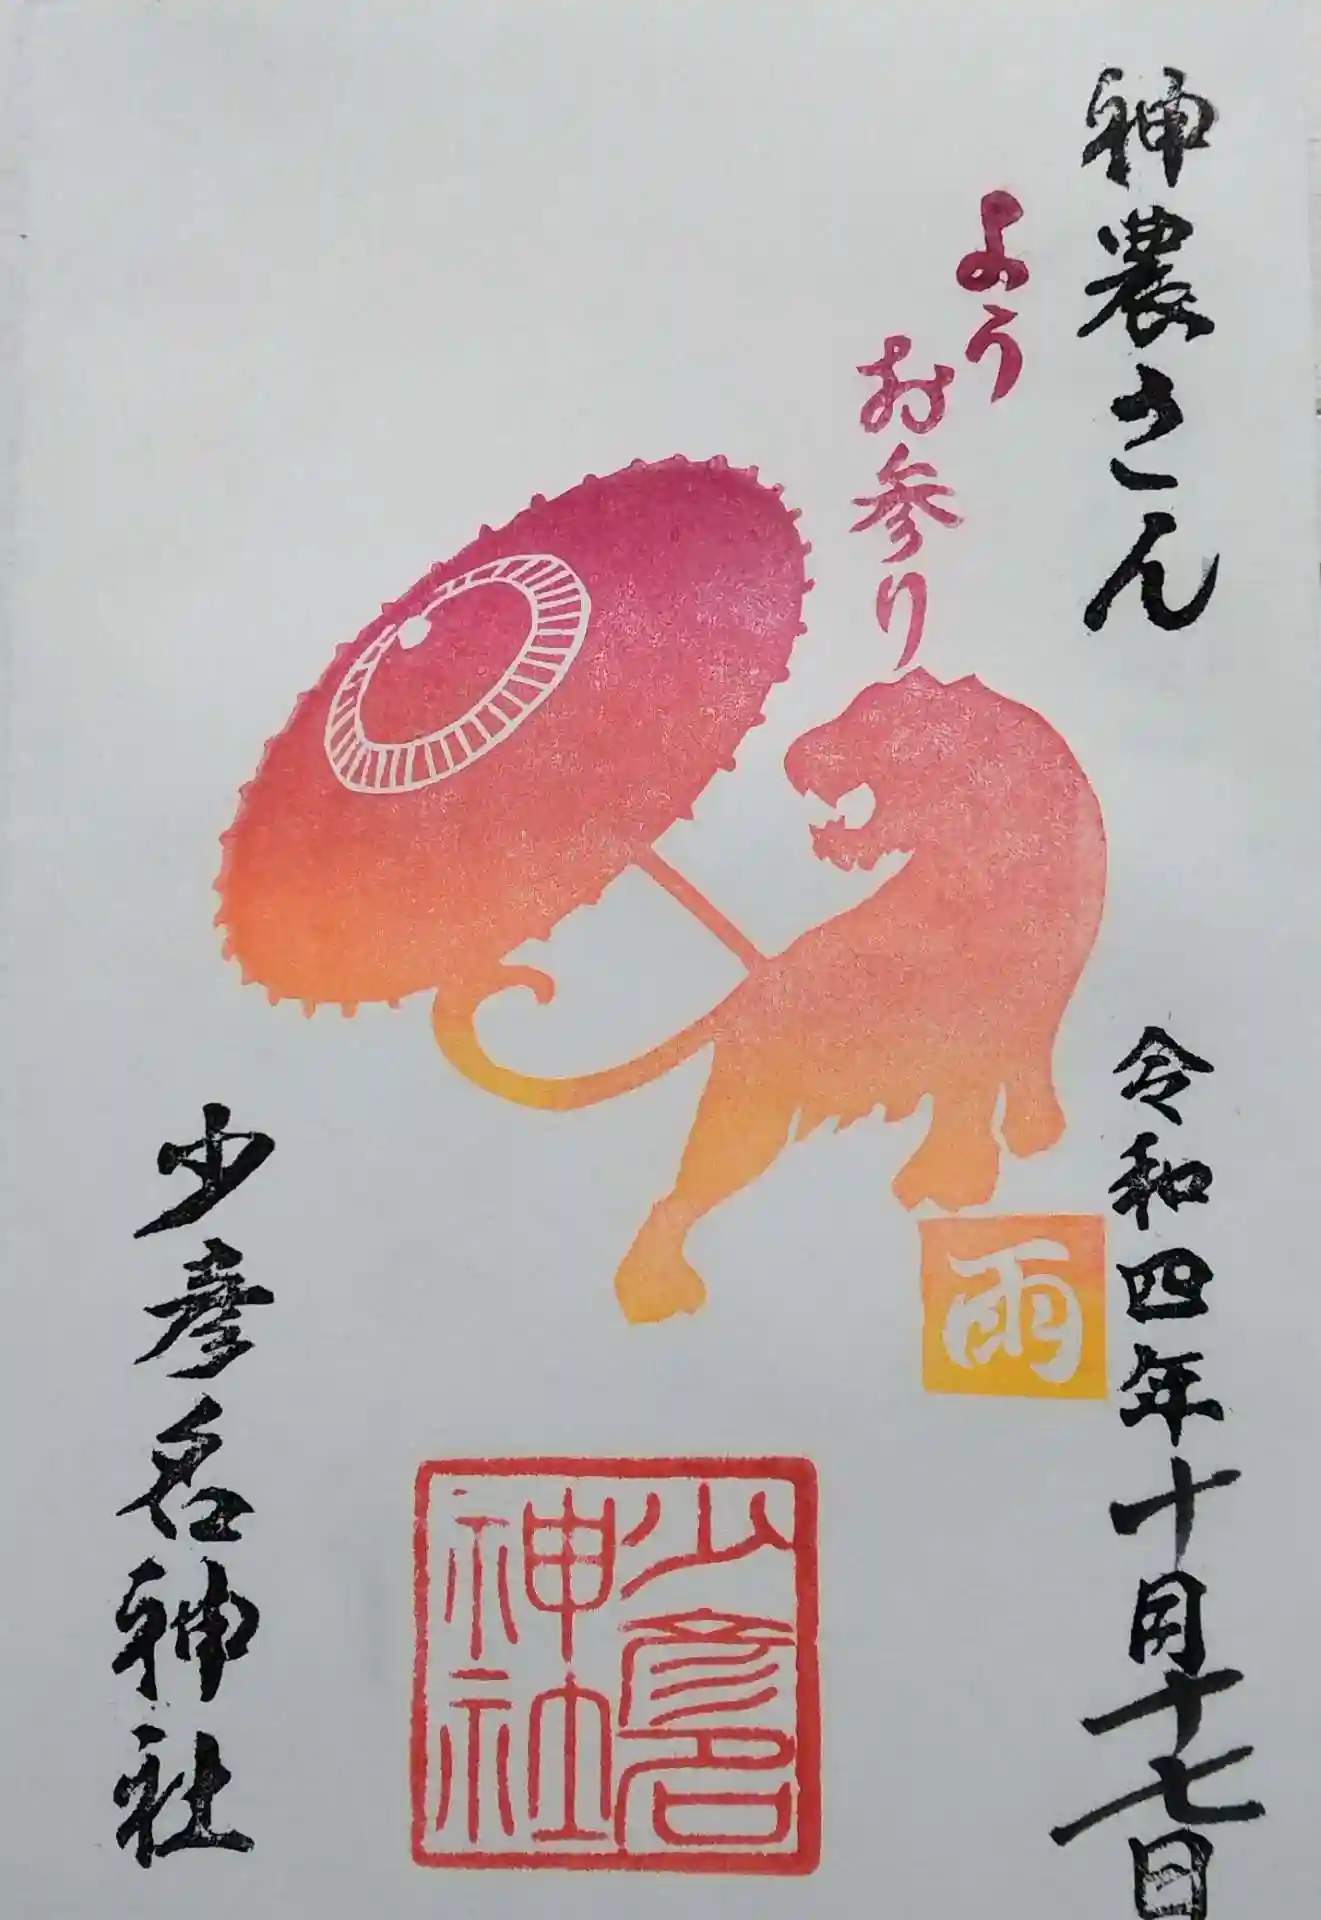 神農さん
令和四年十月十七日
よう
お参り
雨
少彦名
神社
少彦名神社